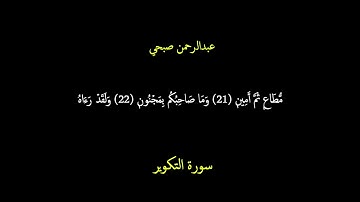 عبدالرحمن صبحي
مُّطَاعٍ ثَمَّ أَمِينٍ (21) وَمَا صَاحِبُكُم بِمَجْنُونٍ (22) وَلَقَدْ رَءَاهُ
سورة التكوير